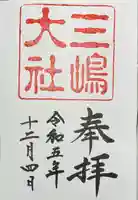 三嶋
大社
奉拝
令和五年
十二月四日